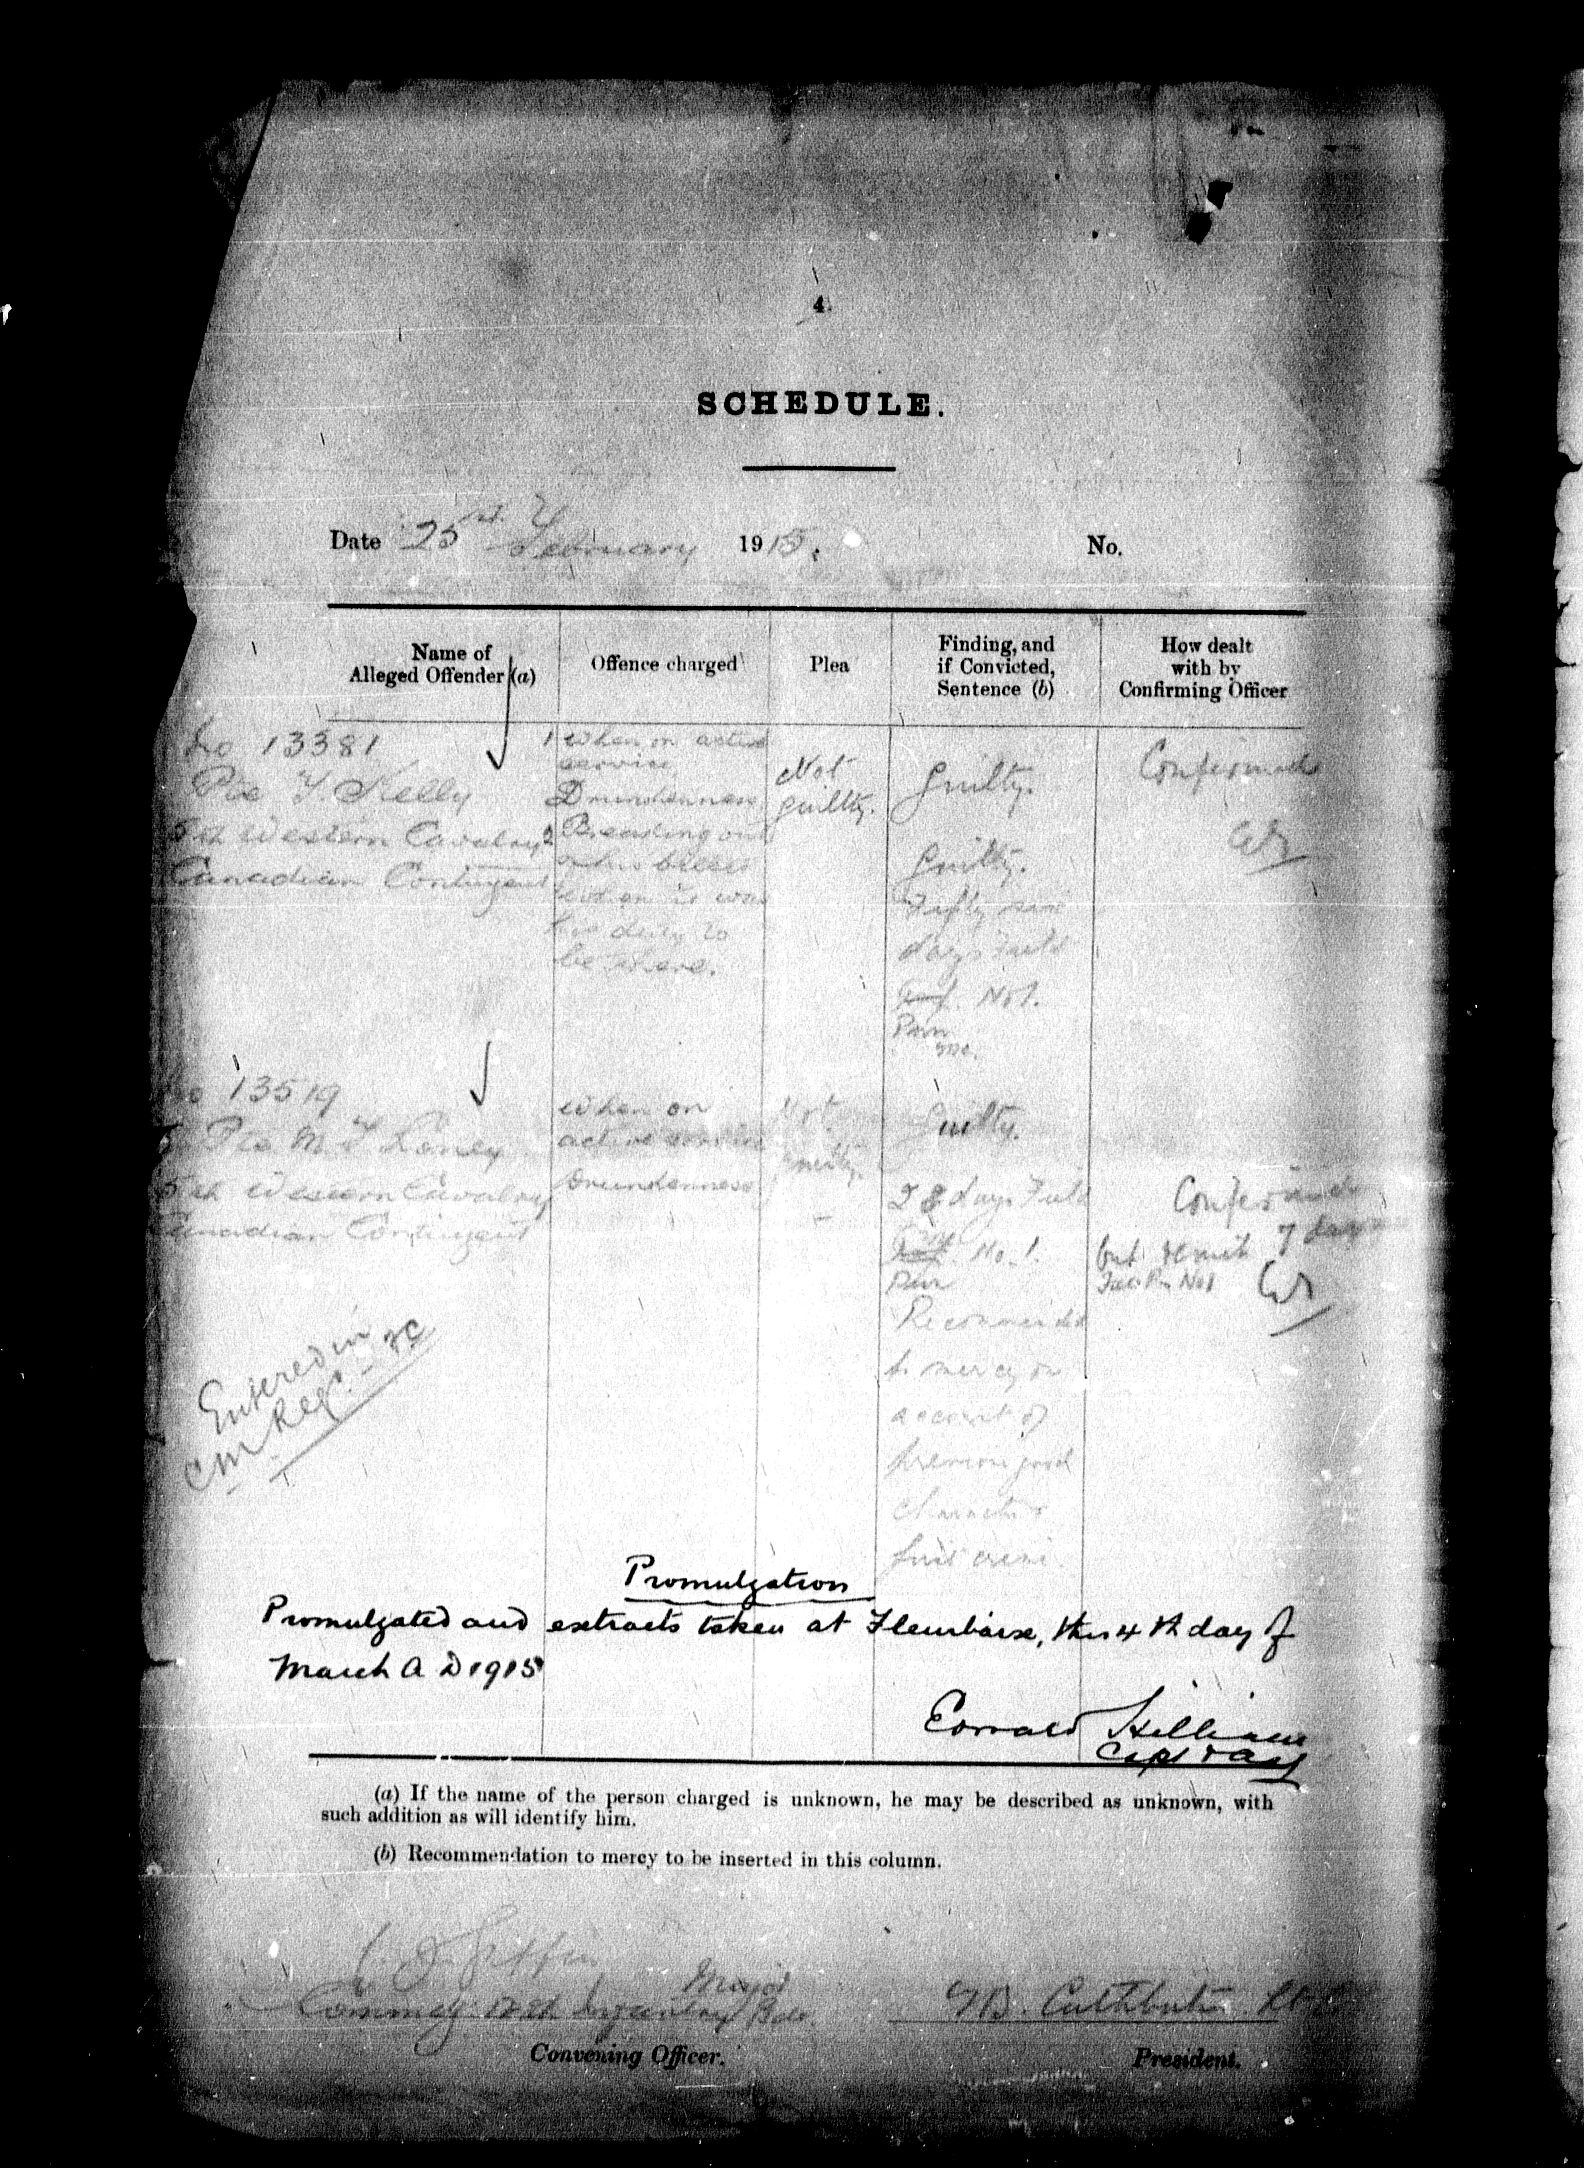 4.
SCHEDULE.
Date 25th February 1915. No.
Name of
Alleged Offender (a)
Offence charged
Plea
Finding, and
if Convicted,
Sentence (b)
How dealt
with by
Confirming Officer
No 13381
Pte Kelly
5th Western Cavalry
Canadian Contingent
1 When on active
service
Drunkenness
2 Breaking out
of his billets
when it was
his duty to
be there.
Not
guilty.
Guilty.
Guilty.
Fifty six
days Field
No 1.
Confirmed
No 13519
Pte M. F. Loney
5th Western Cavalry
Canadian Contingent
When on
active service
Drunkenness
Not
guilty.
Guilty.
28 days Field
No. 1.
Pun
Recommended
to mercy on
account of
previous good
character
Confirmed
but remit 7 days
No 1
Entered in
CM Regr.
Promulgation
Promulgated and extracts taken at Fleurbaix, this 4th day of
March A D 1915
Capt & Adj
(a) If the name of the person charged is unknown, he may be described as unknown, with
such addition as will identify him.
(b) Recommendation to mercy to be inserted in this column.
Major
Infantry Bde.
Convening Officer.
Cuthbert
President.